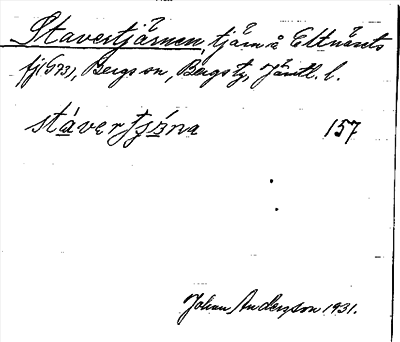 Stavertjärnen, tjärn å Ettnäsets
fj(573), Bergs sn, Bergs tg, Jämtl. l.
stávertjä̱rna 157
Johan Anderzson 1931.